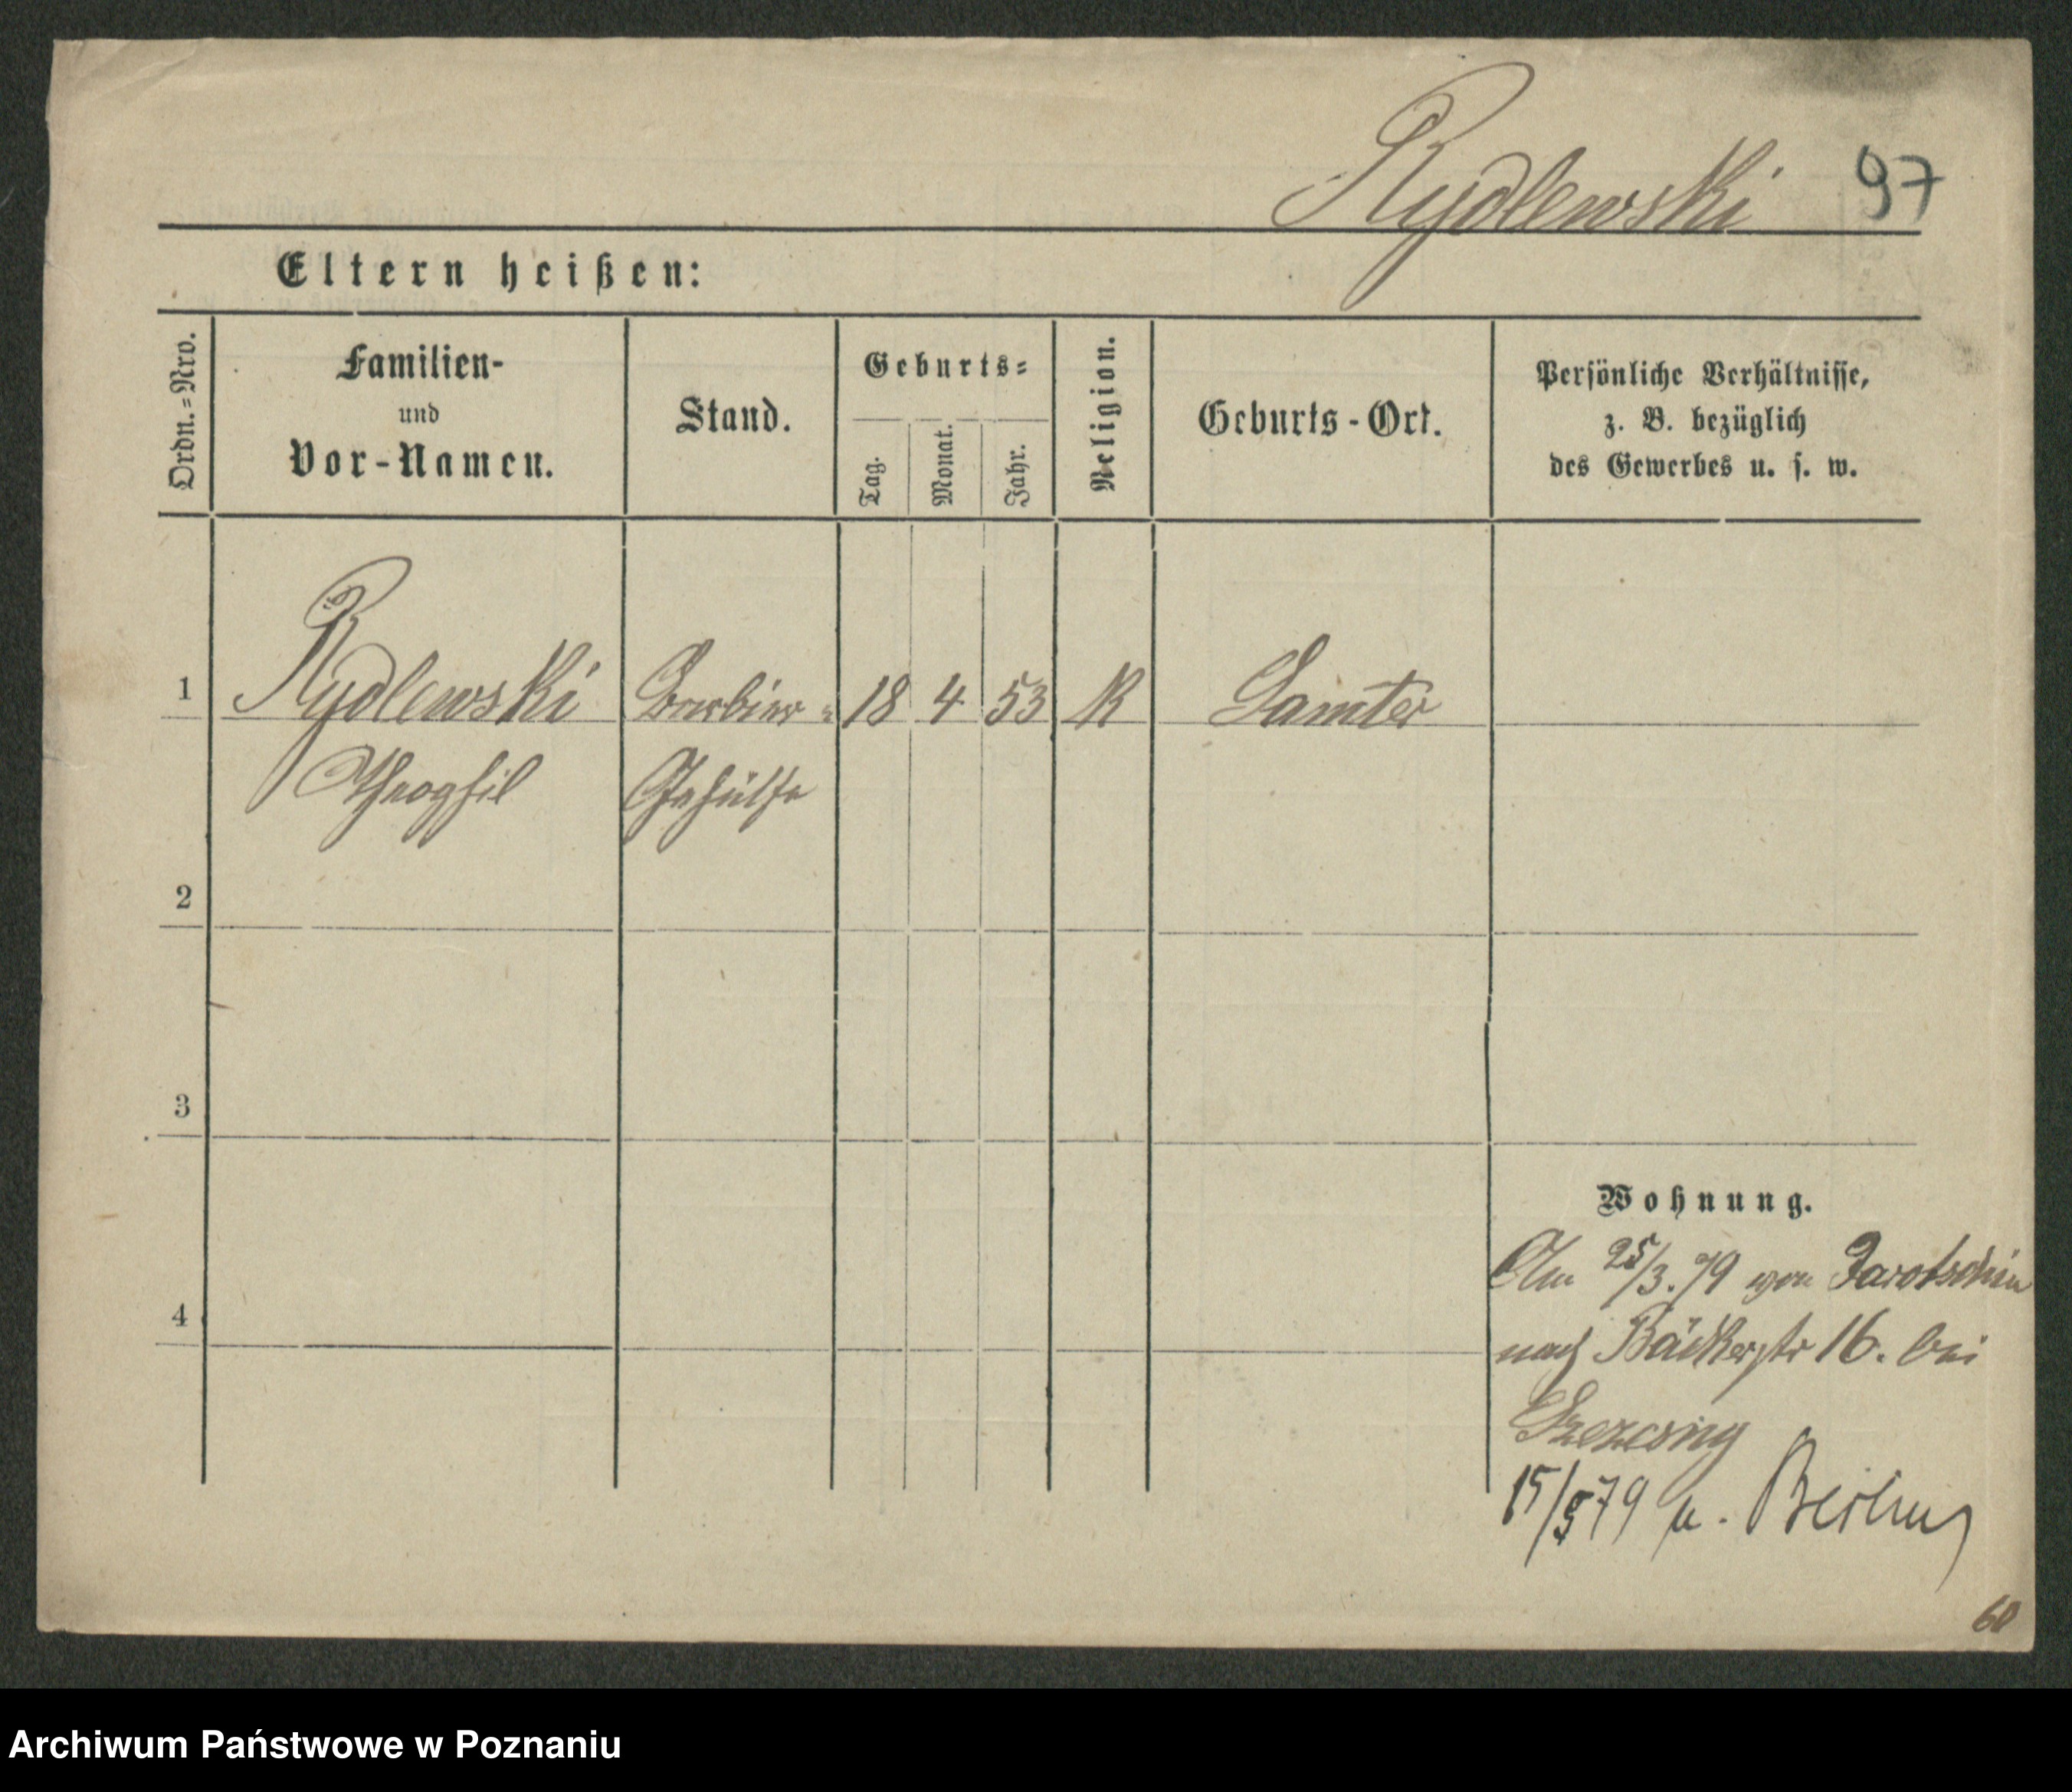 Rydlewski 97
Eltern heißen:
Ordn.=Nro.
Familien-
und
Vor-Namen.
Stand.
Geburts=
Tag.
Monat.
Jahr.
Religion.
Geburts-Ort.
Persönliche Verhältnisse,
z. B. bezüglich
des Gewerbes u. s. w.
1 Rydlewski Barbier= 18 4 53 K Samter
Theophil Gehülfe
2
3
Wohnung.
Am 25/3. 79 von Jarotschin
4
nach Bäckerstr 16. bei
Szczesny
15/5 79 n. Berlin
60
Archiwum Państwowe w Poznaniu